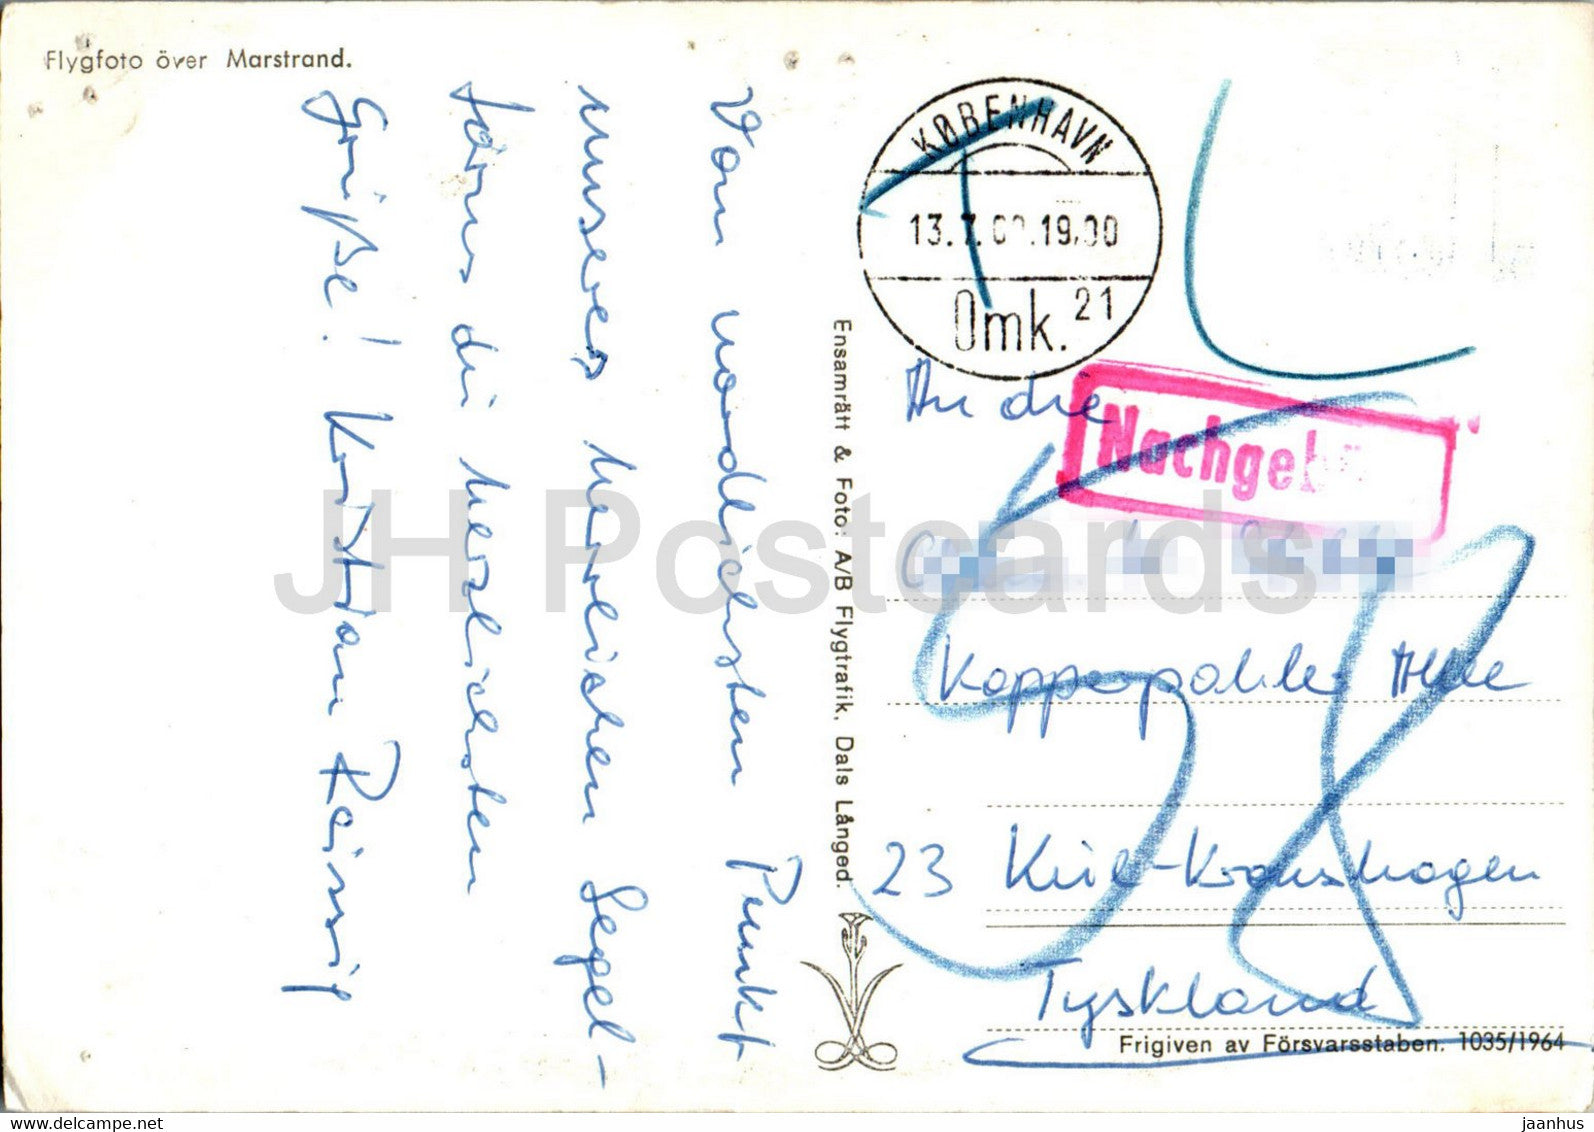 Flygfoto över Marstrand.
Vom nordlichsten Punkt
unseres herrlichen Segel-
törns die herzlichsten
Grüße!
Ensamrätt & Foto: A/B Flygtrafik, Dals Långed.
KØBENHAVN
13.7. .19.00
Omk. 21
An die
Nachgeb
Kopperpahler Allee
23 Kiel-Kronshagen
Tyskland
58
Frigiven av Försvarsstaben. 1035/1964
JH Postcards
delcampe.net
jaanhus